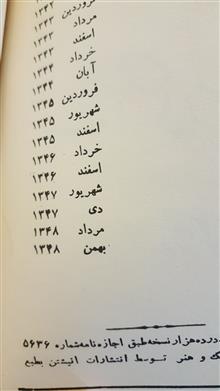 فروردین ۱۳۴۲
مرداد ۱۳۴۲
اسفند ۱۳۴۳
خرداد ۱۳۴۴
آبان ۱۳۴۴
فروردین ۱۳۴۵
شهریور ۱۳۴۵
اسفند ۱۳۴۵
خرداد ۱۳۴۶
اسفند ۱۳۴۶
شهریور ۱۳۴۷
دی ۱۳۴۷
مرداد ۱۳۴۸
بهمن ۱۳۴۸
درده هزار نسخه طبق اجازه نامه شماره ۵۶۳۶
و هنر توسط انتشارات انیشتن بطبع